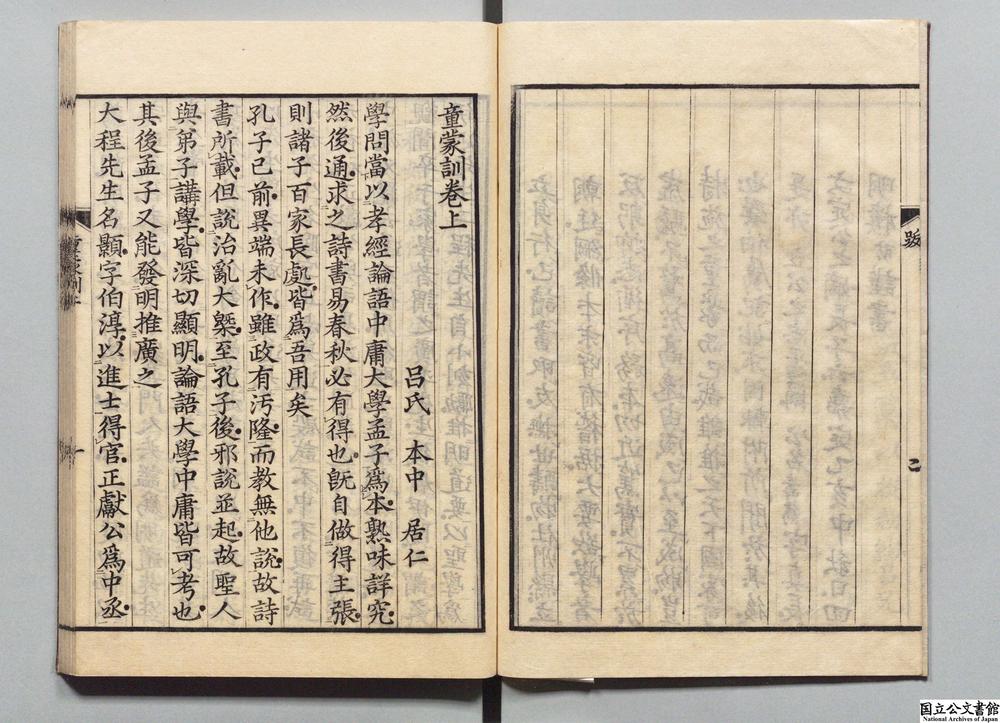 跋
二
童蒙訓卷上
呂氏 本中 居仁
學問當以孝經論語中庸大學孟子爲本熟味詳究
然後通求之詩書易春秋必有得也旣自做得主張
則諸子百家長處皆爲吾用矣
孔子已前異端未作雖政有汚隆而教無他說故詩
書所載但說治亂大槩至孔子後邪說並起故聖人
與弟子講學皆深切顯明論語大學中庸皆可考也
其後孟子又能發明推廣之
大程先生名顥字伯淳以進士得官正獻公爲中丞
国立公文書館
National Archives of Japan